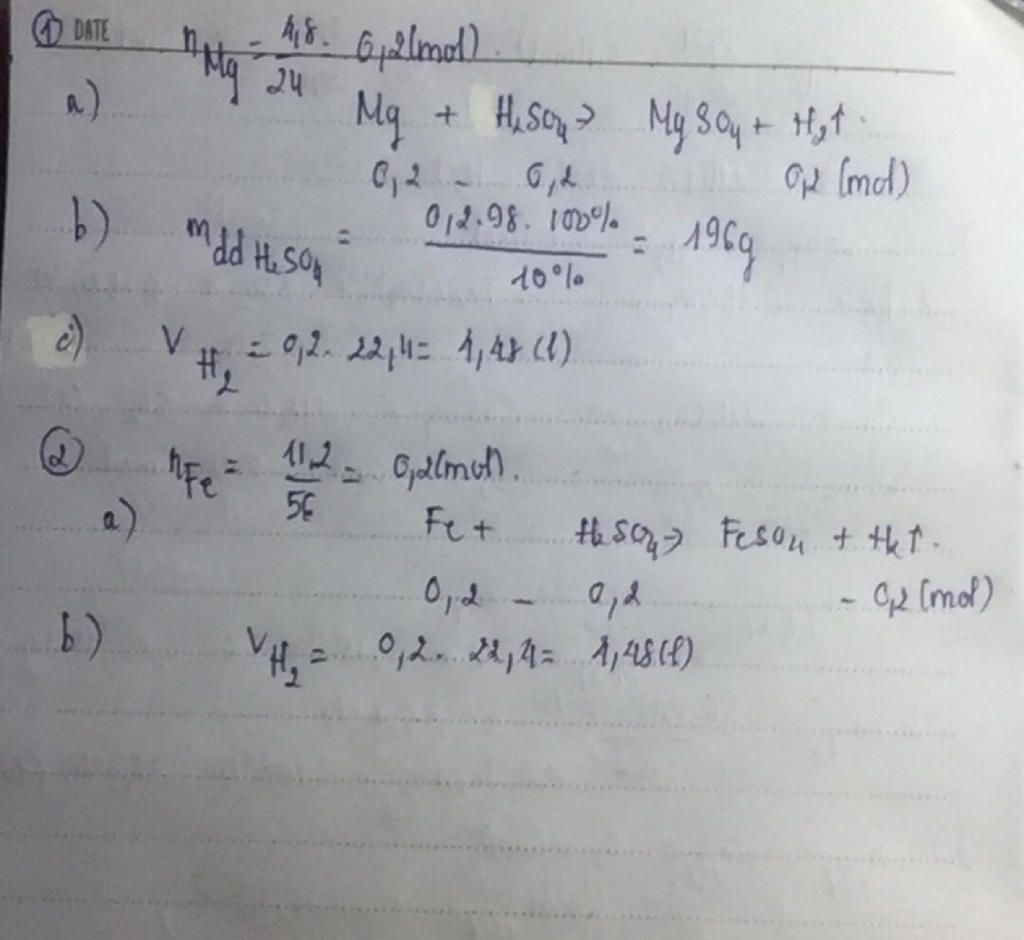 ① DATE n_Mg = 4,8/24 = 0,2 (mol).
a) Mg + H₂SO₄ → MgSO₄ + H₂↑.
0,2 - 0,2 0,2 (mol)
b) m_dd H₂SO₄ = 0,2.98.100%/10% = 196g
c) V_H₂ = 0,2. 22,4 = 4,48 (l)
② n_Fe = 11,2/56 = 0,2 (mol).
a) Fe + H₂SO₄ → FeSO₄ + H₂↑.
0,2 - 0,2 - 0,2 (mol)
b) V_H₂ = 0,2. 22,4 = 4,48 (l)